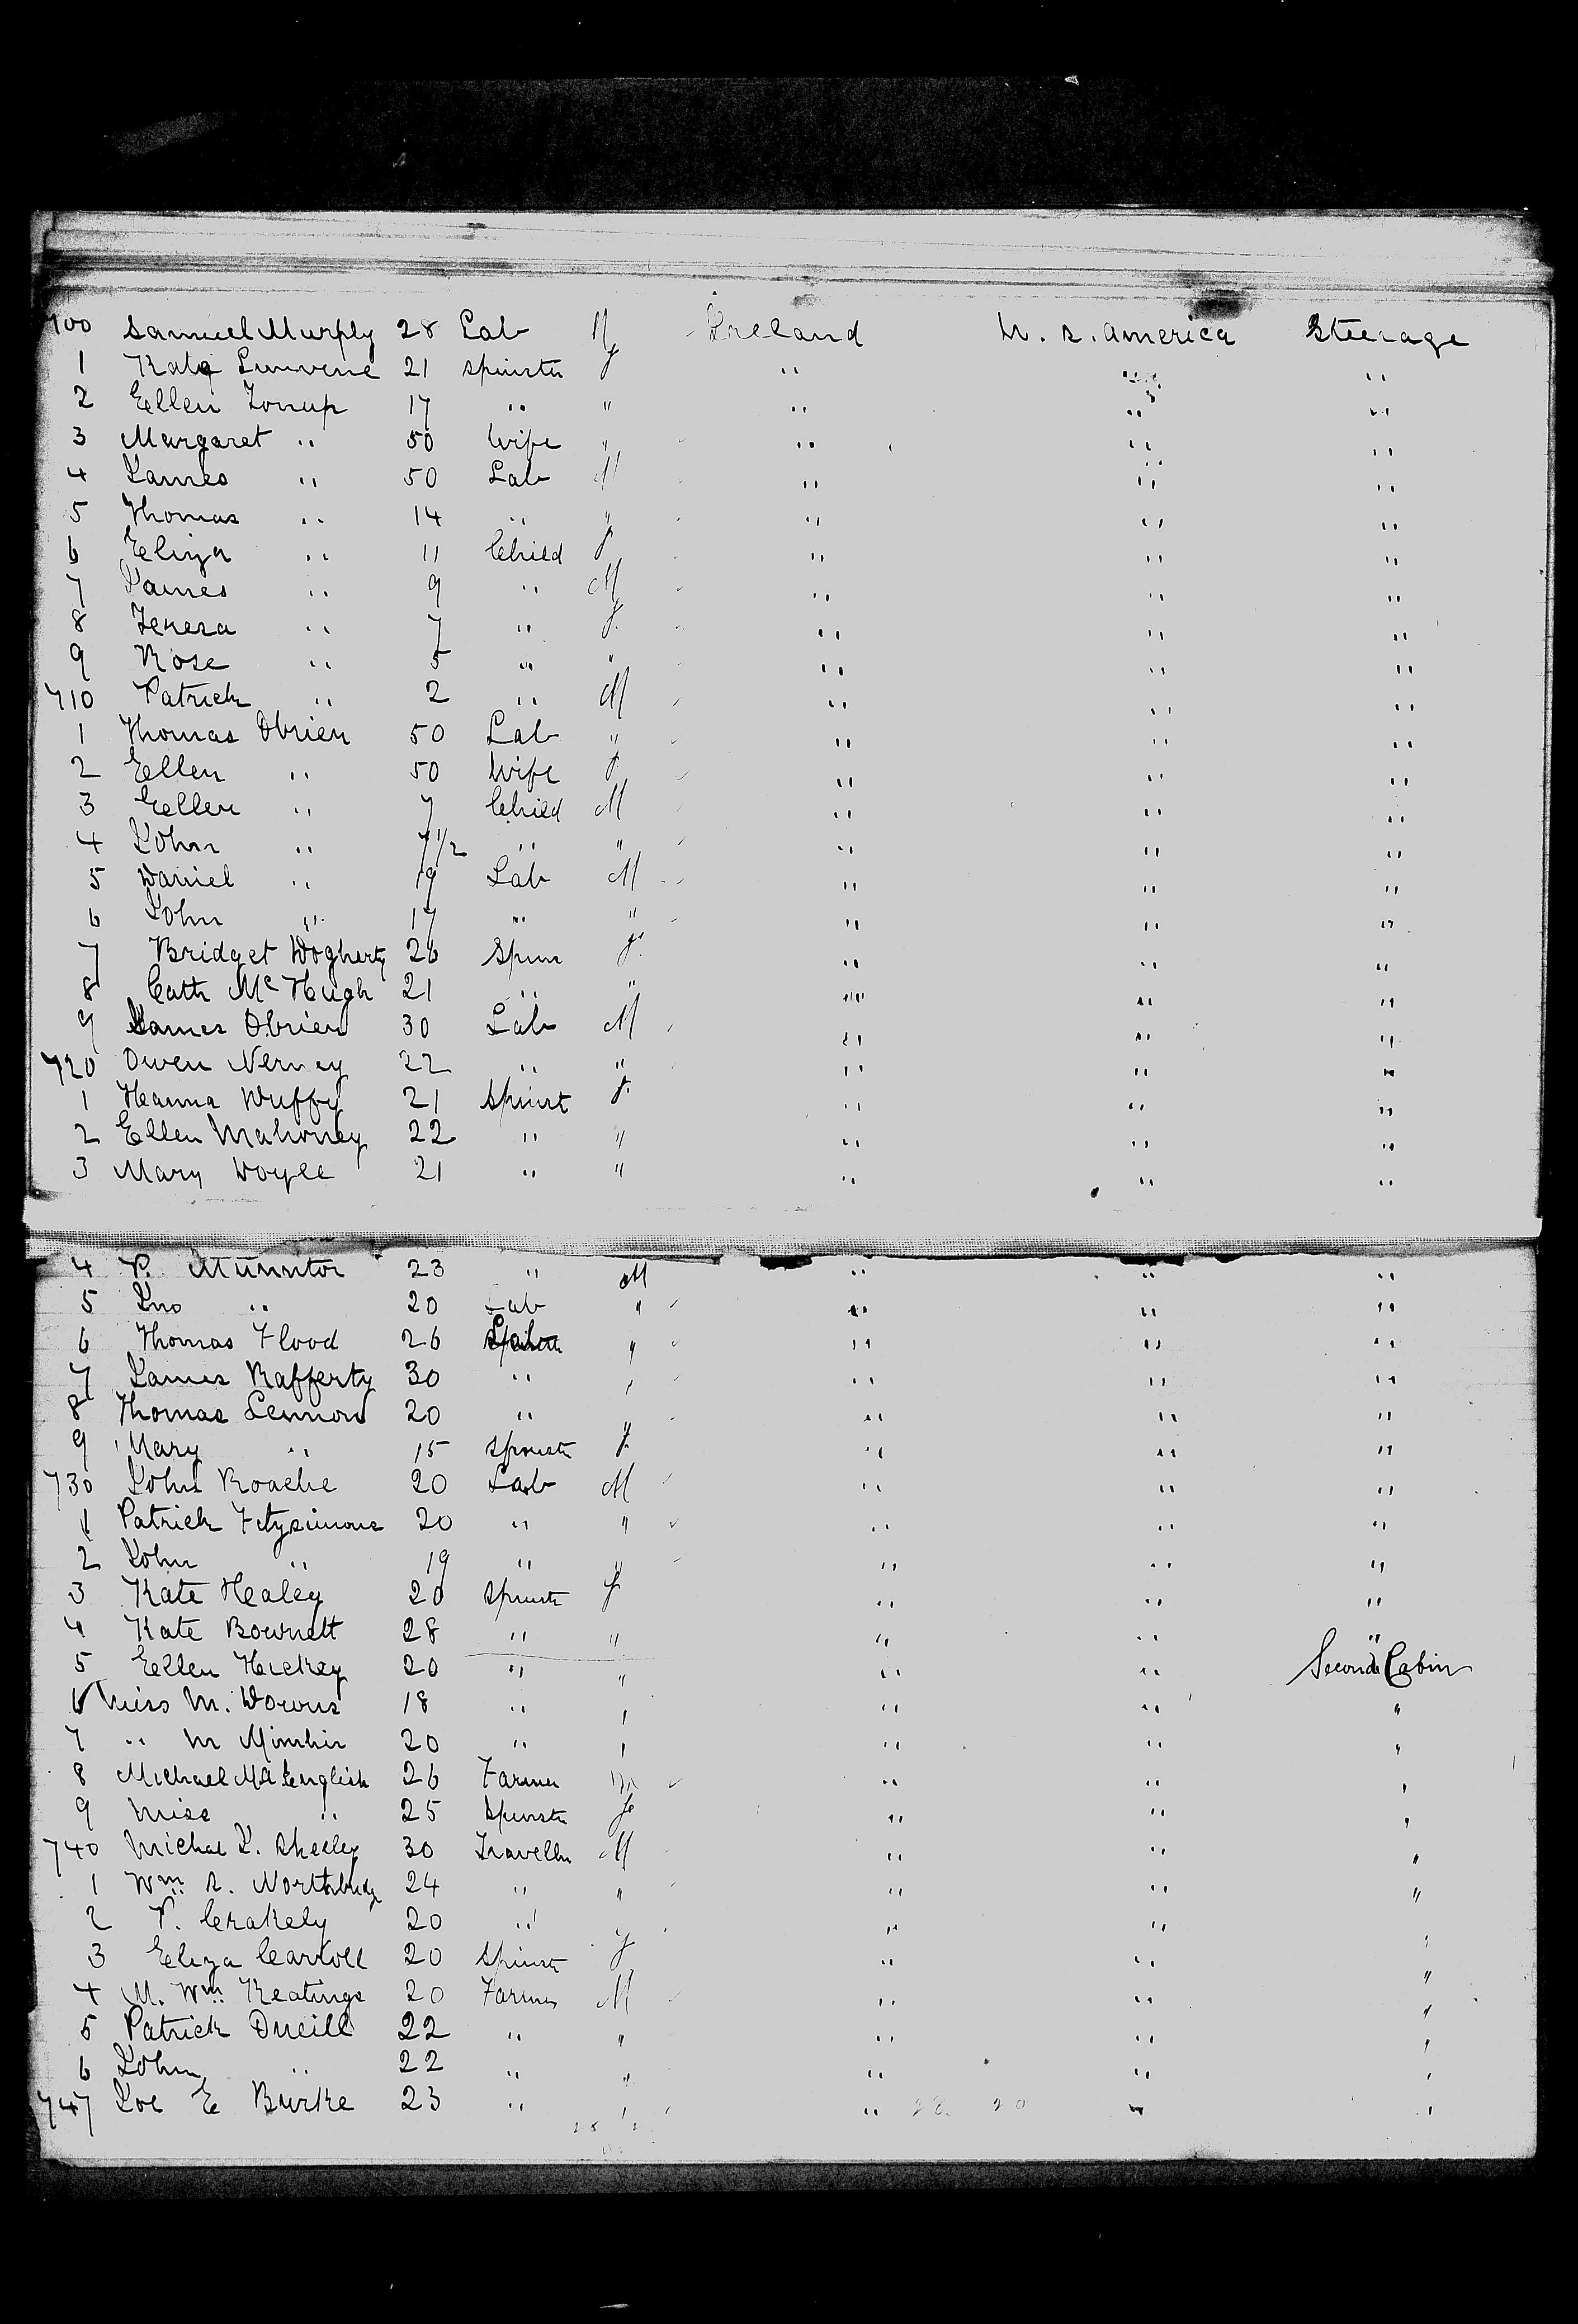 700 Samuel Murphy 28 Lab M Ireland U. S. America Steerage
1 Kate 21 Spinster f " " "
2 Ellen 17 " " " " "
3 Margaret " 50 Wife " " " "
4 James " 50 Lab M " " "
5 Thomas " 14 " " " " "
6 Eliza " 11 Child f " " "
7 James " 9 " M " " "
8 Teresa " 7 " f " " "
9 Rose " 5 " " " " "
710 Patrick " 2 " M " " "
1 Thomas Obrien 50 Lab " " " "
2 Ellen " 50 Wife f " " "
3 Ellen " 7 Child M " " "
4 John " 7 1/2 " " " " "
5 Daniel " 19 Lab M " " "
6 John " 17 " " " " "
7 Bridget Dogherty 26 Spin f " " "
8 Cath McHugh 21 " " " " "
9 James Obrien 30 Lab M " " "
720 Owen Nerney 22 " " " " "
1 Hanna Duffy 21 Spinst f " " "
2 Ellen Mahoney 22 " " " " "
3 Mary Doyle 21 " " " " "
4 P. 23 " M " " "
5 Jno " 20 Lab " " " "
6 Thomas Flood 26 Lab " " " "
7 James Rafferty 30 " " " " "
8 Thomas Lennon 20 " " " " "
9 Mary " 15 Spinste f " " "
730 John Roache 20 Lab M " " "
1 Patrick Fitzsimons 20 " " " " "
2 John " 19 " " " " "
3 Kate Healey 20 Spinste f " " "
4 Kate 28 " " " " "
5 Ellen Hickey 20 " " " " Second Cabin
6 Miss M. Downs 18 " " " " "
7 " M 20 " " " " "
8 Michael 26 Farmer M " " "
9 Miss " 25 Spinste f " " "
740 Michael J. Shelley 30 Traveller M " " "
1 Wm S. 24 " " " " "
2 P. 20 " " " " "
3 Eliza Carroll 20 Spinste f " " "
4 M. Wm Keatinge 20 Farmer M " " "
5 Patrick Oneill 22 " " " " "
6 John " 22 " " " " "
747 Joe E Burke 23 " " " " "